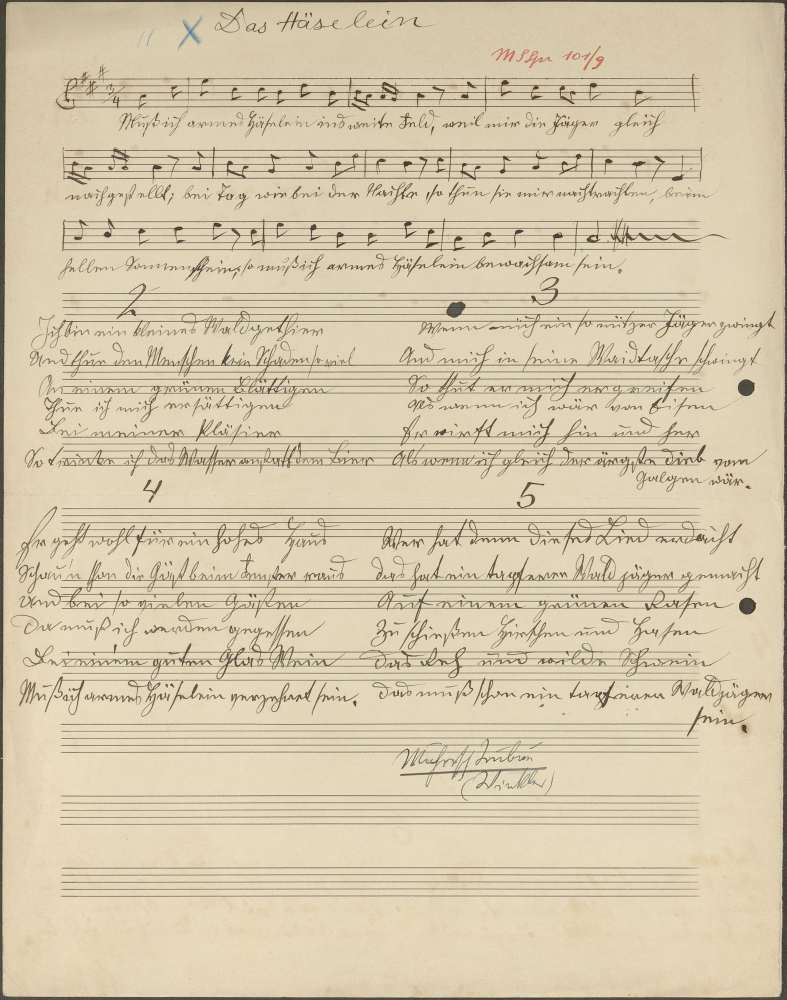 11 X Das Häselein
MSSpr 101/9
3/4
Muß ich armes Häselein ins weite Feld, weil mir die Jäger gleich
nachgestellt; bei Tag wie bei der Nachte, so thun sie mir nachtrachten, beim
hellen Sonnenschein; so muß ich armes Häselein bewachsam sein.
2
Ich bin ein kleines Waldgethier
Und thue den Menschen kein Schaden so viel
An einem grünen Blättigen
Thue ich mich ersättigen
Bei meiner Pläsier
So trinke ich das Wasser anstatt dem Bier
3
Wenn mich ein so nützer Jäger zwingt
Und mich in seine Waidtasche schwingt
So thut er mich ergreifen
Als wenn ich wär von Eisen
Er wirft mich hin und her
Als wenn ich gleich der ärgste Dieb vom
Galgen wär.
4
Er geht wohl für ein hohes Haus
Schau'n schon die Gäst beim Fenster raus
Und bei so vielen Gästen
Da muß ich werden gegessen
Bei einem guten Glas Wein
Muß ich armes Häselein verzehret sein.
5
Wer hat denn dieses Lied erdacht
Das hat ein tapferer Waldjäger gemacht
Auf einem grünen Rasen
Zu schießen Hirschen und Hasen
Das Reh und wilde Schwein
Das muß schon ein tapferer Waldjäger
sein.
(Winkler)